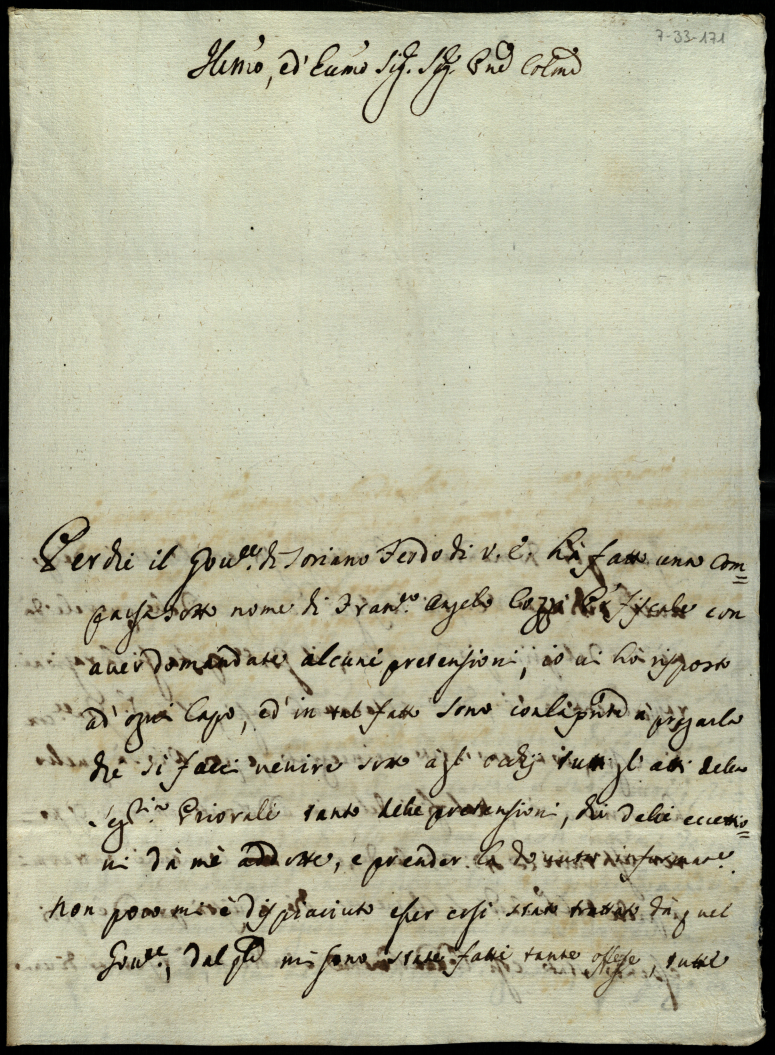 7-33-171
Illmo, ed' Eccmo Sig. Sig. Pne Colmo
Perche il Gov.re di Soriano Feudo di V. E. hà fatto una com=
parsa sotto nome di Fran.co Angelo Cozzi Pre Fiscale con
aver domandate alcune pretensioni, io vi hò risposto
ad' ogni Capo, ed' in tal fatto sono colla pnte à pregarla
che si facci venire sotto agl' occhj tutti gl' atti della
Seg.ria Priorale tanto delle pretensioni, che delle eccettio=
ni dà mè addotte, e prender
Non poco mi è dispiaciuto esser così stato trattato dà quel
Gov.re, dal qle mi sono state fatte tante offese, tutte